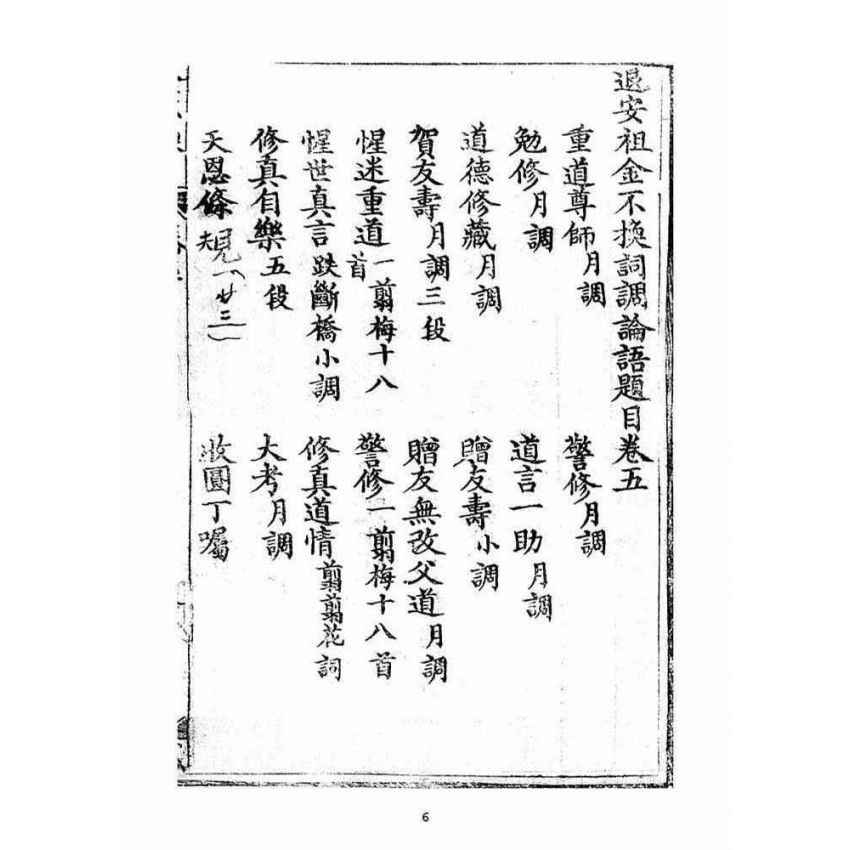 退安祖金不換詞調論語題目卷五
重道尊師月調 警修月調
勉修月調 道言一助月調
道德修藏月調 贈友壽小調
賀友壽月調三段 贈友無改父道月調
惺迷重道一翦梅十八首 警修一翦梅十八首
惺世真言跌斷橋小調 修真道情翦翦花詞
修真自樂五段 大考月調
天恩條規一廿三 收圓丁囑
6